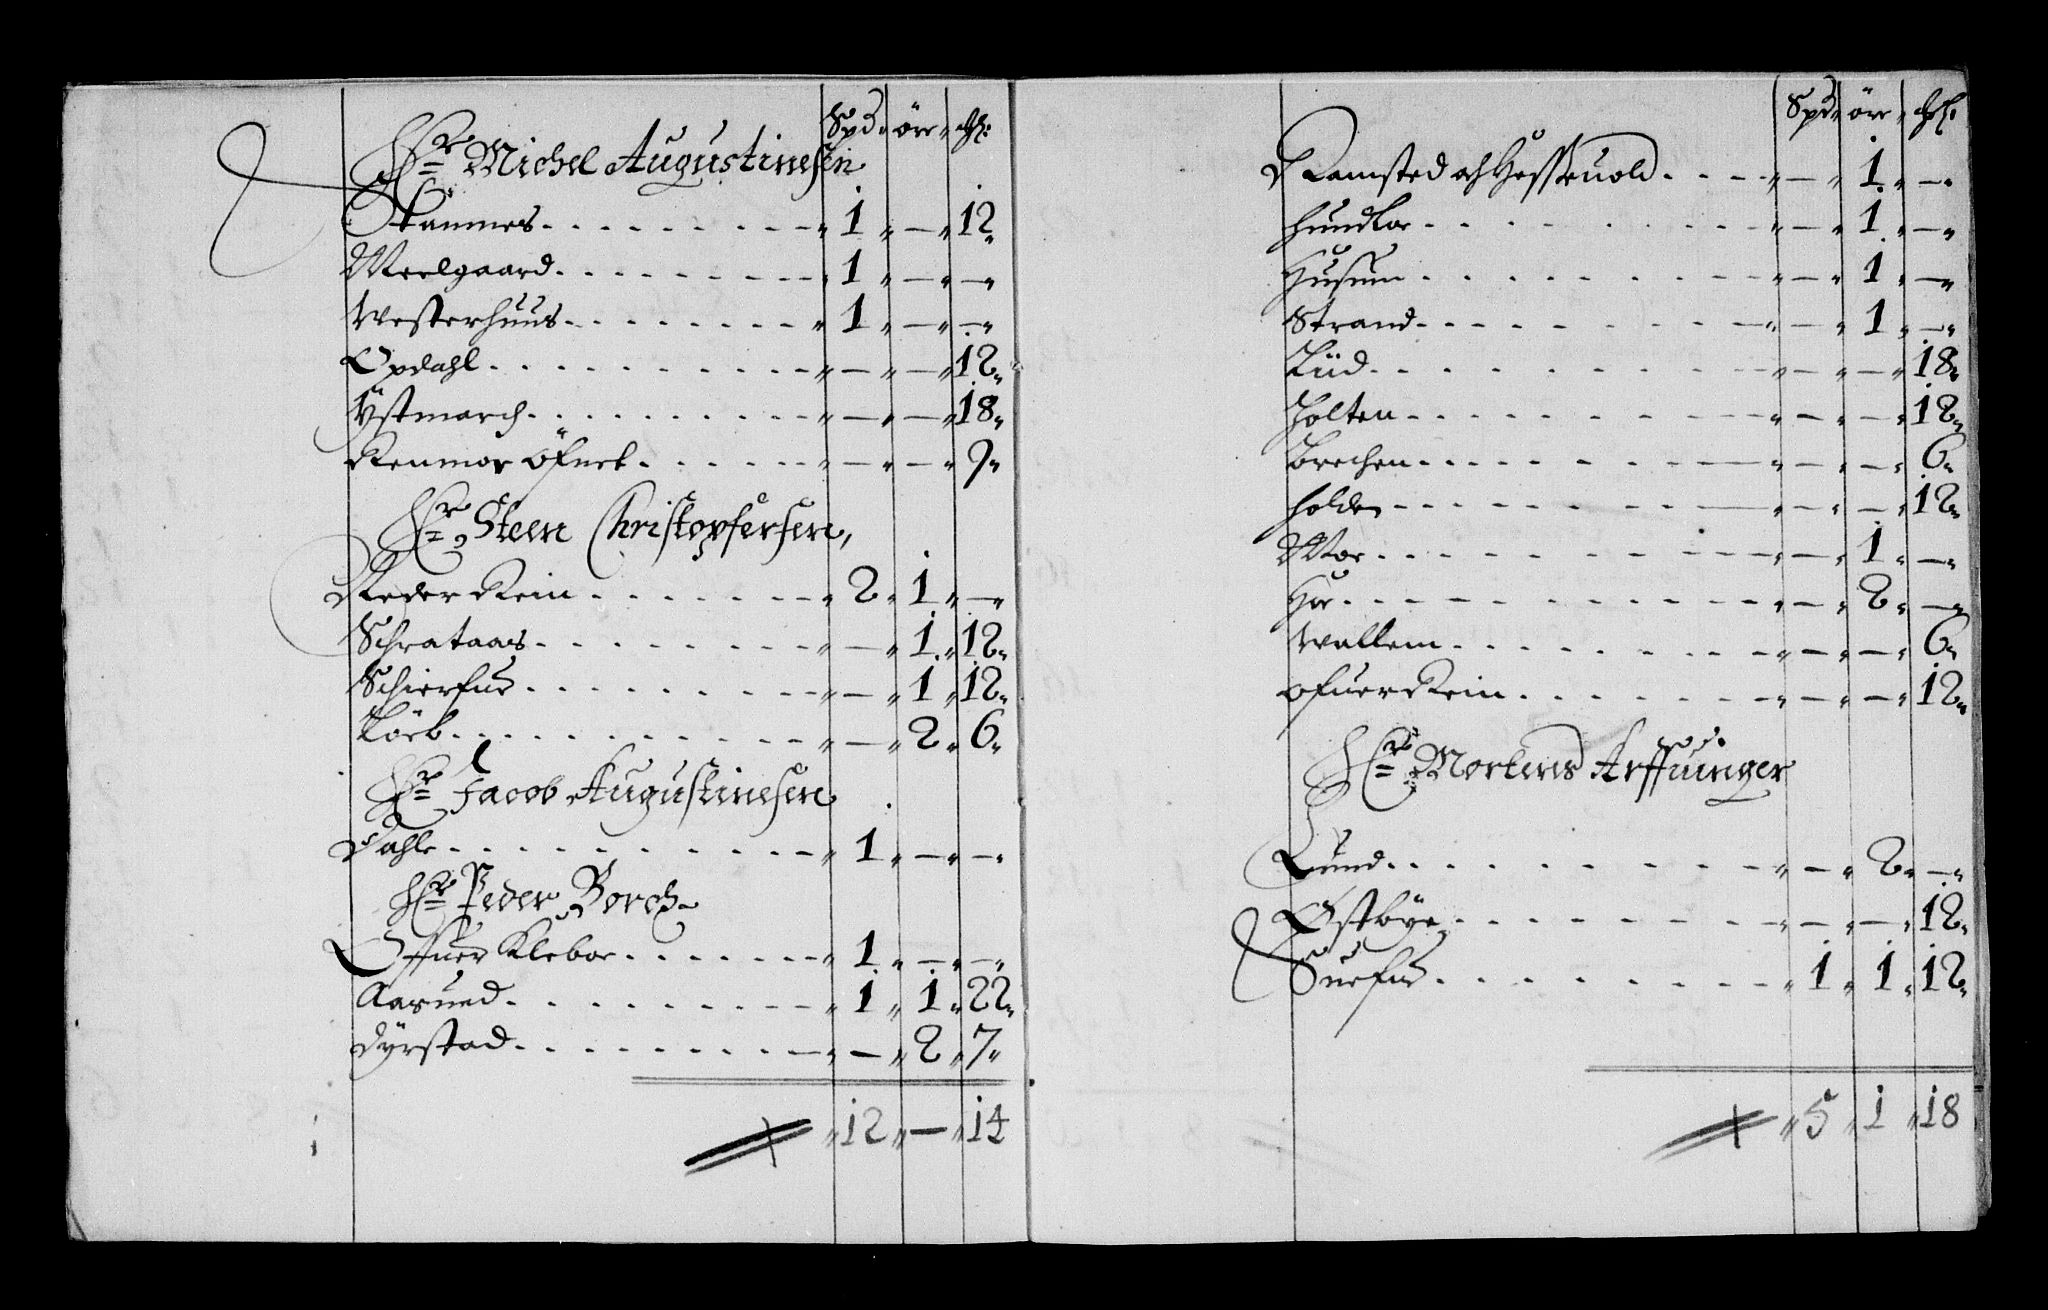 Spd. öre. ß:
Hr Michel Augustinesen
Stammes. 1 — 12
Meelgaard. 1 — —
Westerhuus. 1 — —
Opdahl. — — 12
Ystmarch. — — 18
Renmor öfuet. — — 9
Hr Steen Christopfersen,
Neder Rein. 2 1 —
Schrataas. — 1 12
Schierfue. — 1 12
Lörb. — 2 6
Hr Jacob Augustinesen
Dahle. 1 — —
Hr Peder Borch
Offuer Klebor. 1 — —
Aasued. 1 1 22
Dÿrstad. — 2 7
12 — 14
Spd. öre. ß:
Ramsted och Hesseuold. — 1 —
Hundlor. — 1 —
Husum. — 1 —
Strand. — 1 —
Liid. — — 18
Holten. — — 12
Brechen. — — 6
Holden. — — 12
Moe. — 1 —
Hoe. — 2 —
Wallem. — — 6
Ofuer Rein. — — 12
Hr Mortens Arffuinger
Lund. — 2 —
Østbÿe. — — 12
Suefue. 1 1 12
5 1 18